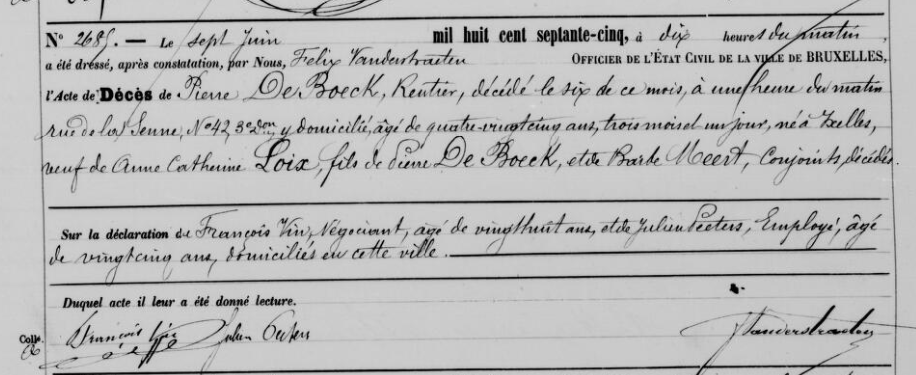 N° 2685. — Le sept Juin mil huit cent septante-cinq, à dix heures du matin,
a été dressé, après constatation, par Nous, Felix Vanderstraeten OFFICIER DE L'ÉTAT CIVIL DE LA VILLE DE BRUXELLES,
l'Acte de Décès de Pierre De Boeck, Rentier, décédé le six de ce mois, à une heure du matin
rue de la Senne, N° 42, 3e don, y domicilié, âgé de quatre-vingt cinq ans, trois mois et un jour, né à Ixelles,
veuf de Anne Catherine Loix, fils de Pierre De Boeck, et de Barbe Meert, Conjoints, décédés.
Sur la déclaration de François Vin, Négociant, âgé de vingt huit ans, et de Julien Peeters, Employé, âgé
de vingt cinq ans, domiciliés en cette ville.
Duquel acte il leur a été donné lecture.
Colle François Vin Julien Peeters Vanderstraeten